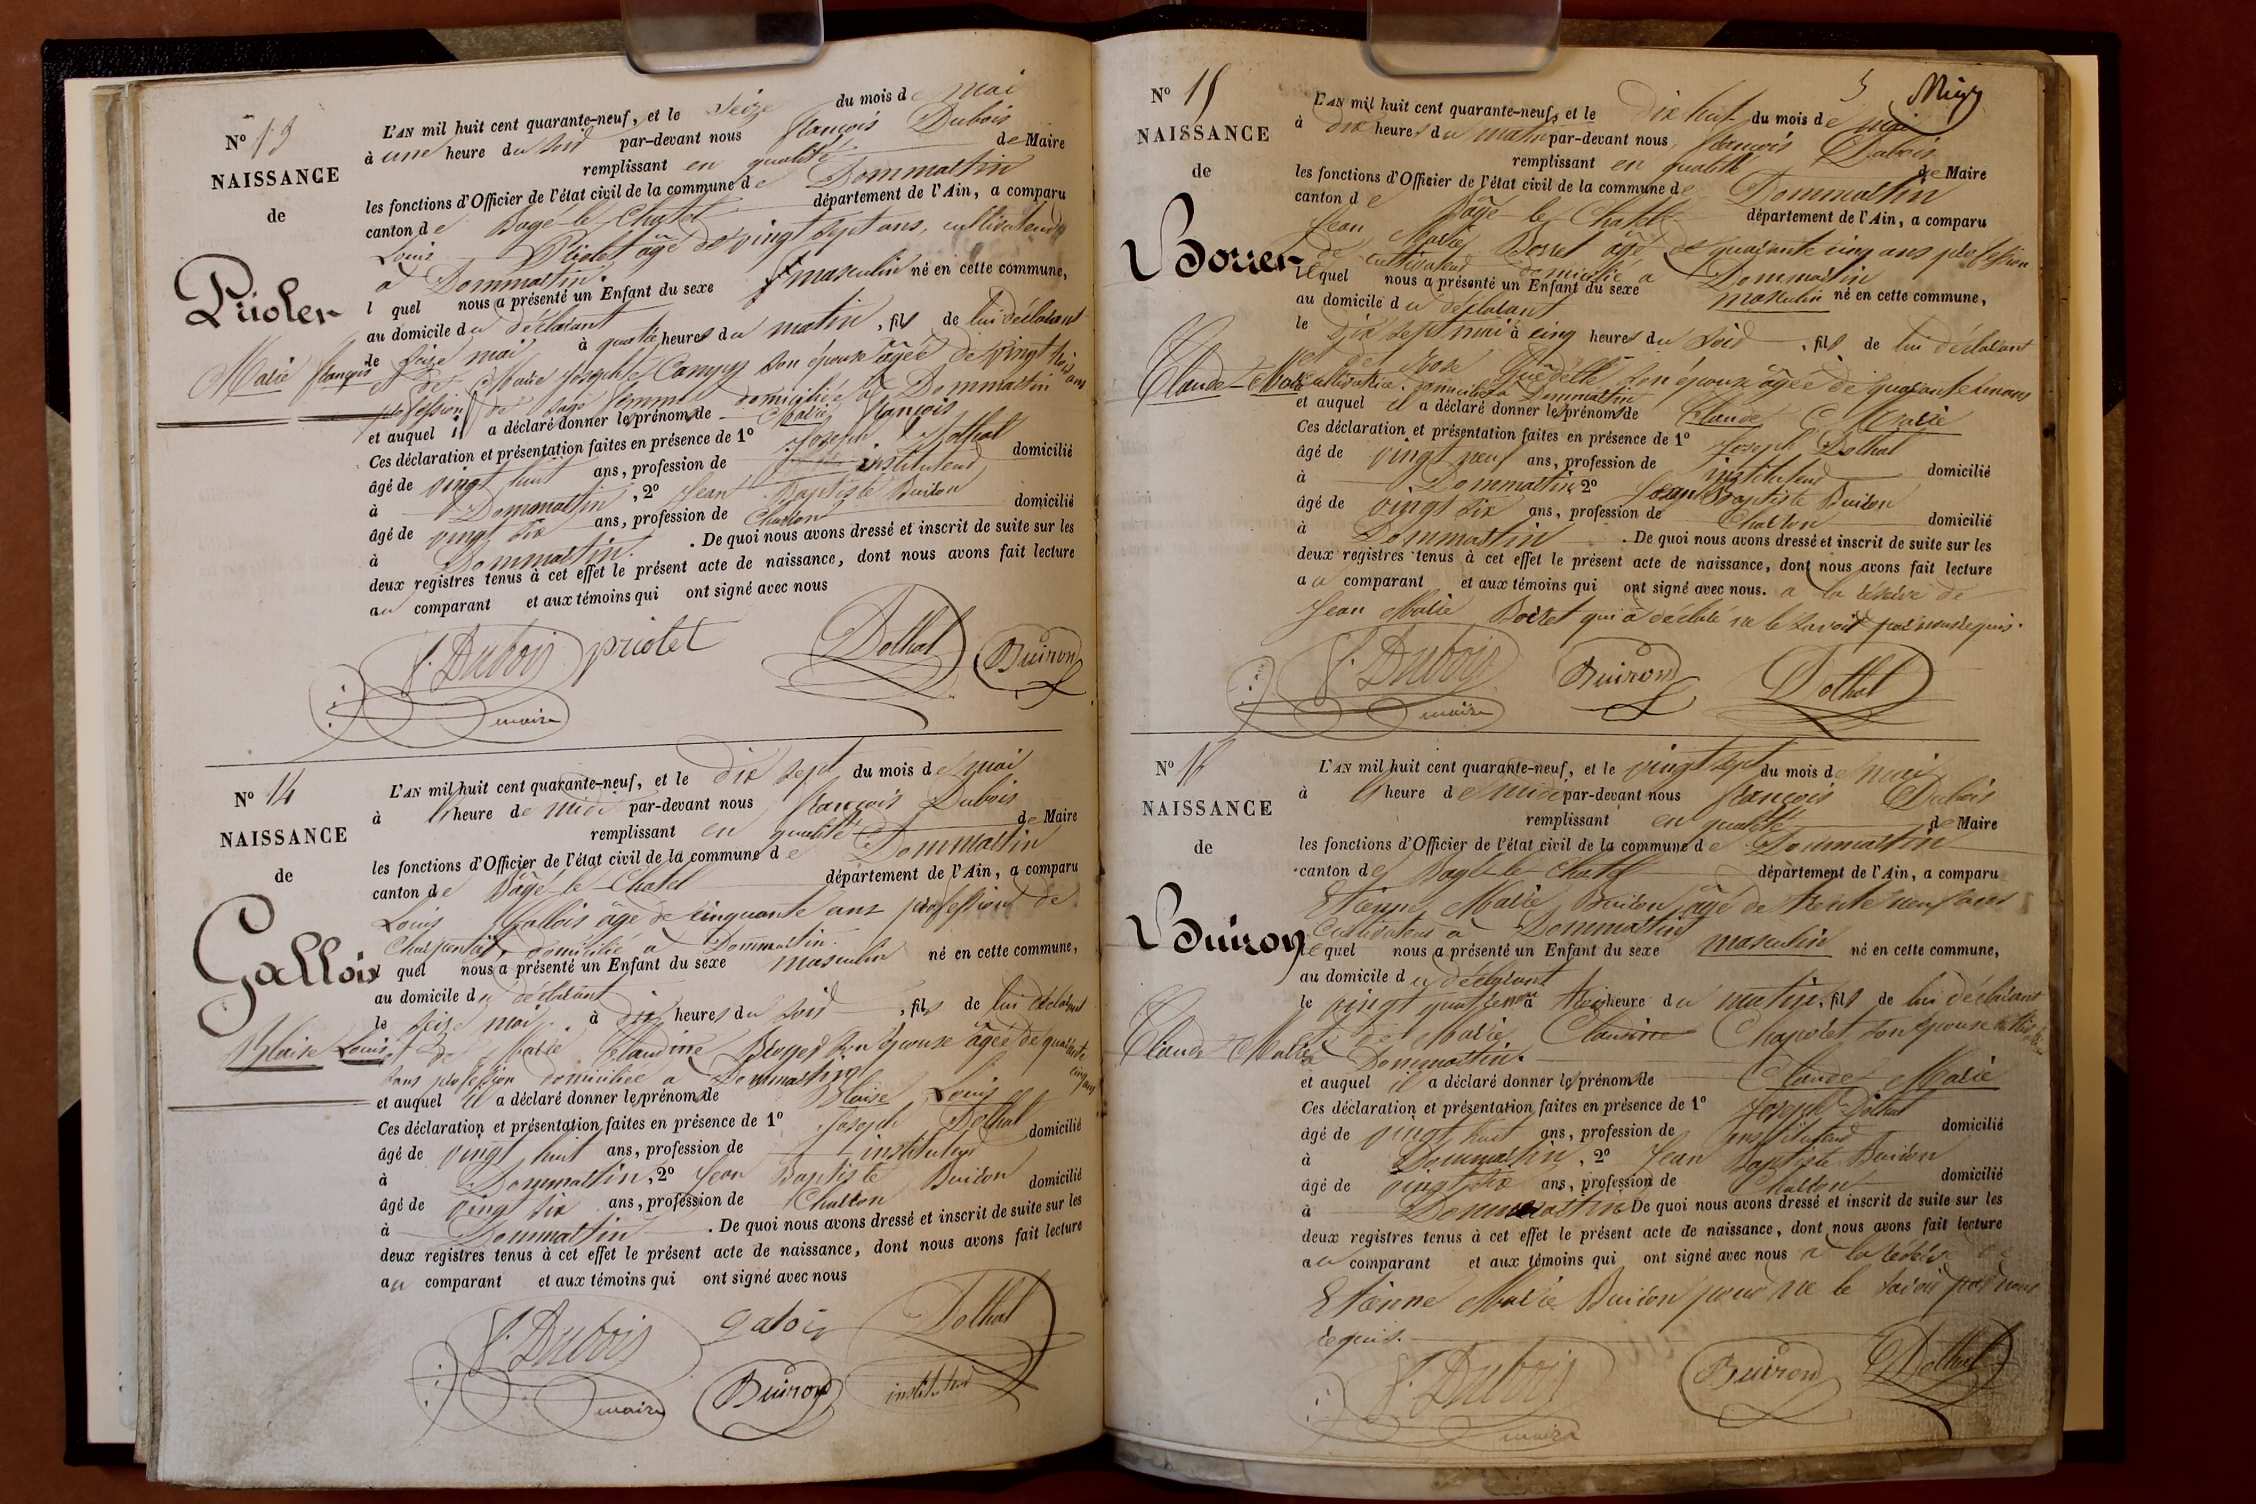 N° 13
NAISSANCE
de
Priolet
Marie françois
L'AN mil huit cent quarante-neuf, et le Seize du mois de mai
à une heure du soir par-devant nous françois Dubois
remplissant en qualité de Maire
les fonctions d'Officier de l'état civil de la commune de Dommartin
canton de Bagé-le-Chatel département de l'Ain, a comparu
Louis Priolet âgé de vingt sept ans, cultivateur
à Dommartin.
l quel nous a présenté un Enfant du sexe masculin né en cette commune,
au domicile du déclarant
le seize mai à quatre heures du matin, fils de lui déclarant
et de Marie Josephte Campy son épouse âgée de vingt trois ans
profession de sage femme domiciliée à Dommartin
et auquel il a déclaré donner les prénoms de Marie françois
Ces déclaration et présentation faites en présence de 1° Joseph Dothal
âgé de vingt huit ans, profession de instituteur domicilié
à Dommartin, 2° Jean Baptiste Buiron
âgé de vingt six ans, profession de Charron domicilié
à Dommartin. . De quoi nous avons dressé et inscrit de suite sur les
deux registres tenus à cet effet le présent acte de naissance, dont nous avons fait lecture
au comparant et aux témoins qui ont signé avec nous
f. Dubois priolet Dothal Buiron
maire
N° 14
NAISSANCE
de
Gallois
Blaise Louis
L'AN mil huit cent quarante-neuf, et le dix sept du mois de mai
à heure de midi par-devant nous françois Dubois
remplissant en qualité de Maire
les fonctions d'Officier de l'état civil de la commune de Dommartin
canton de Bâgé le Chatel département de l'Ain, a comparu
Louis Gallois âgé de cinquante ans profession de
Charpentier, domicilié à Dommartin.
l quel nous a présenté un Enfant du sexe masculin né en cette commune,
au domicile du déclarant
le seize mai à dix heures du soir, fils de lui déclarant
et de Marie Claudine Broyer son épouse âgée de quarante cinq ans
sans profession domiciliée à Dommartin
et auquel il a déclaré donner les prénoms de Blaise Louis
Ces déclaration et présentation faites en présence de 1° Joseph Dothal
âgé de vingt huit ans, profession de instituteur domicilié
à Dommartin, 2° Jean Baptiste Buiron
âgé de vingt six ans, profession de Charron domicilié
à Dommartin . De quoi nous avons dressé et inscrit de suite sur les
deux registres tenus à cet effet le présent acte de naissance, dont nous avons fait lecture
au comparant et aux témoins qui ont signé avec nous
f. Dubois galois Dothal
maire Buiron instituteur
5
N° 15
NAISSANCE
de
Borret
Claude-Marie
L'AN mil huit cent quarante-neuf, et le dix huit du mois de mai
à dix heures du matin par-devant nous françois Dubois
remplissant en qualité de Maire
les fonctions d'Officier de l'état civil de la commune de Dommartin
canton de Bâgé-le-Chatel département de l'Ain, a comparu
Jean Marie Borret âgé de quarante cinq ans profession
de cultivateur domicilié à Dommartin
lequel nous a présenté un Enfant du sexe masculin né en cette commune,
au domicile du déclarant
le dix sept mai à cinq heures du soir, fils de lui déclarant
et de Rose son épouse âgée de quarante ans
cultivatrice domiciliée à Dommartin
et auquel il a déclaré donner les prénoms de Claude Marie
Ces déclaration et présentation faites en présence de 1° Joseph Dothal
âgé de vingt neuf ans, profession de instituteur domicilié
à Dommartin, 2° Jean Baptiste Buiron
âgé de vingt six ans, profession de Charron domicilié
à Dommartin . De quoi nous avons dressé et inscrit de suite sur les
deux registres tenus à cet effet le présent acte de naissance, dont nous avons fait lecture
au comparant et aux témoins qui ont signé avec nous. a la réserve de
Jean Marie Borret qui a déclaré ne le savoir par nous requis.
f. Dubois Buiron Dothal
maire
N° 16
NAISSANCE
de
Buiron
Claude Marie
L'AN mil huit cent quarante-neuf, et le vingt sept du mois de mai
à heure de midi par-devant nous françois Dubois
remplissant en qualité de Maire
les fonctions d'Officier de l'état civil de la commune de Dommartin
canton de Bagé-le-Chatel département de l'Ain, a comparu
Etienne Marie Buiron âgé de trente neuf ans
Cultivateur à Dommartin
lequel nous a présenté un Enfant du sexe masculin né en cette commune,
au domicile du déclarant
le vingt quatre à trois heure du matin, fils de lui déclarant
et de Marie Claudine Chapolet son épouse
à Dommartin.
et auquel il a déclaré donner les prénoms de Claude Marie
Ces déclaration et présentation faites en présence de 1° Joseph Dothal
âgé de vingt huit ans, profession de instituteur domicilié
à Dommartin, 2° Jean Baptiste Buiron
âgé de vingt six ans, profession de Charron domicilié
à Dommartin De quoi nous avons dressé et inscrit de suite sur les
deux registres tenus à cet effet le présent acte de naissance, dont nous avons fait lecture
au comparant et aux témoins qui ont signé avec nous a la réserve de
Etienne Marie Buiron pour ne le savoir par nous
requis.
f. Dubois Buiron Dothal
maire